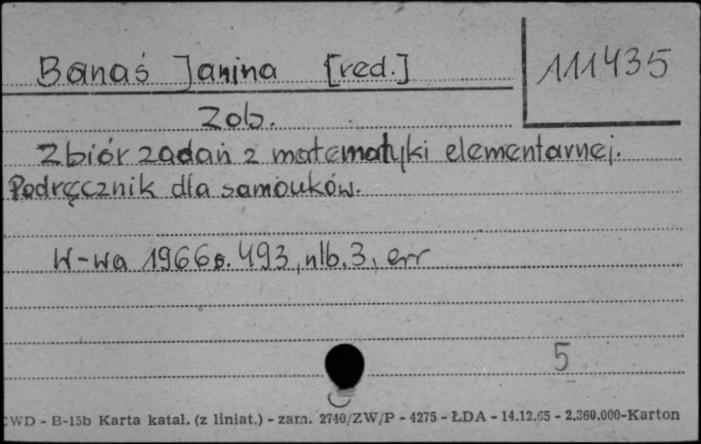 Banaś Janina [red.]
111435
Zob.
Zbiór zadań z matematyki elementarnej.
Podręcznik dla samouków.
W-wa 1966 s. 493, nlb. 3, err
5
CWD - B-15b Karta katal. (z liniat.) - zam. 2740/ZW/P - 4275 - ŁDA - 14.12.65 - 2.360.000-Karton